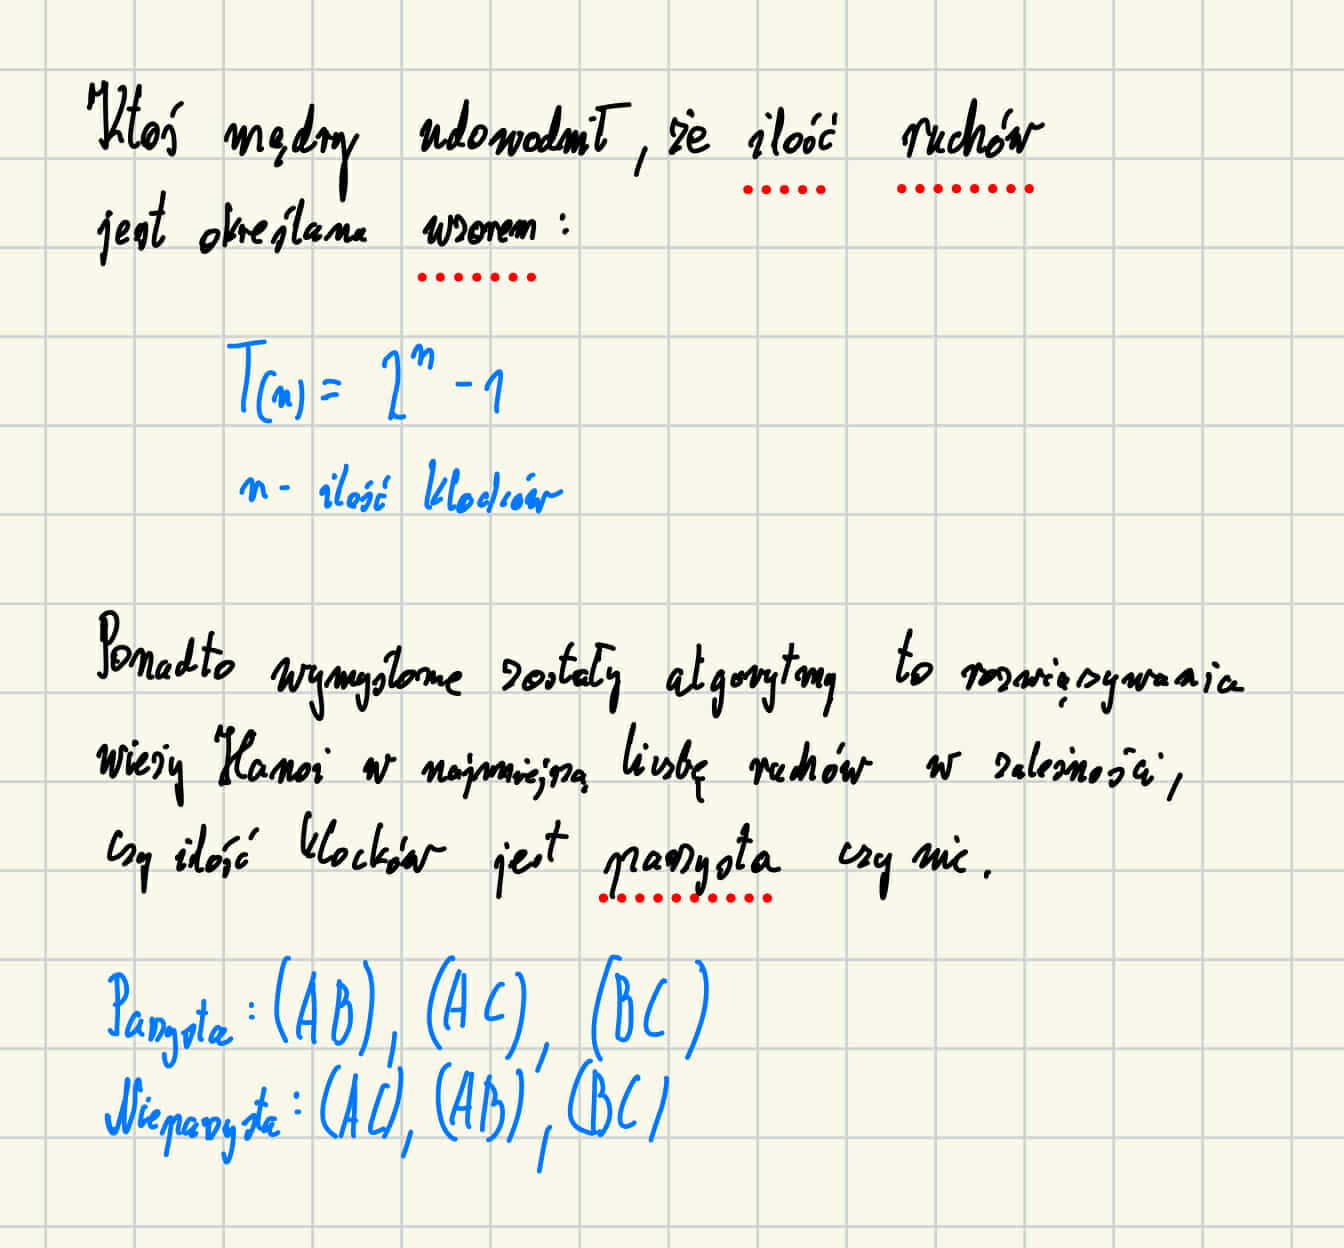 Ktoś mądry udowodnił, że ilość ruchów
jest określana wzorem:
T(n) = 2^n - 1
n - ilość klocków
Ponadto wymyślone zostały algorytmy to rozwiązywania
wieży Hanoi w najmniejszą liczbę ruchów w zależności,
czy ilość klocków jest parzysta czy nie.
Parzysta: (AB), (AC), (BC)
Nieparzysta: (AC), (AB), (BC)